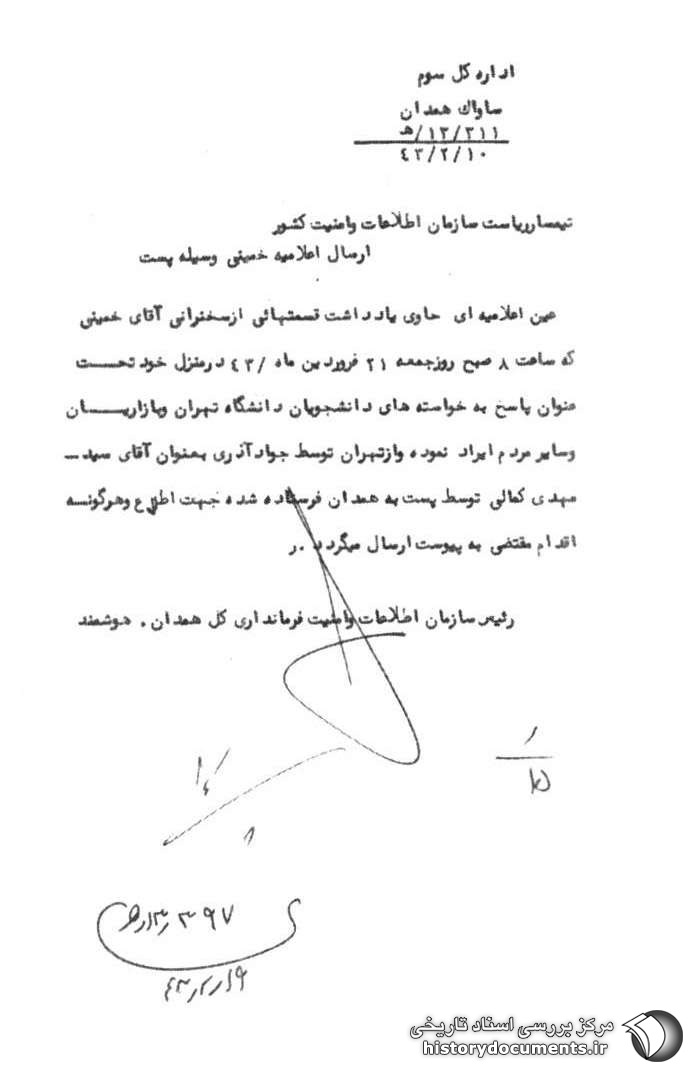 اداره کل سوم
ساواک همدان
۱۲/۳۱۱/هـ
۴۳/۲/۱۰
تیمسار ریاست سازمان اطلاعات وامنیت کشور
ارسال اعلامیه خمینی وسیله پست
عین اعلامیه ای حاوی یادداشت قسمتهائی ازسخنرانی آقای خمینی
که ساعت ۸ صبح روزجمعه ۲۱ فروردین ماه /۴۳ درمنزل خود تحـــت
عنوان پاسخ به خواسته های دانشجویان دانشگاه تهران وبازاریـــان
وسایر مردم ایراد نموده وازتهران توسط جوادآذری بعنوان آقای سید ــ
مهدی کمالی توسط پست به همدان فرستاده شده جهت اطلاع وهرگونـه
اقدام مقتضی به پیوست ارسال میگردد .ر
رئیس سازمان اطلاعات وامنیت فرمانداری کل همدان . هوشمند
۴۳٫۲٫۱۹
مرکز بررسی اسناد تاریخی
historydocuments.ir